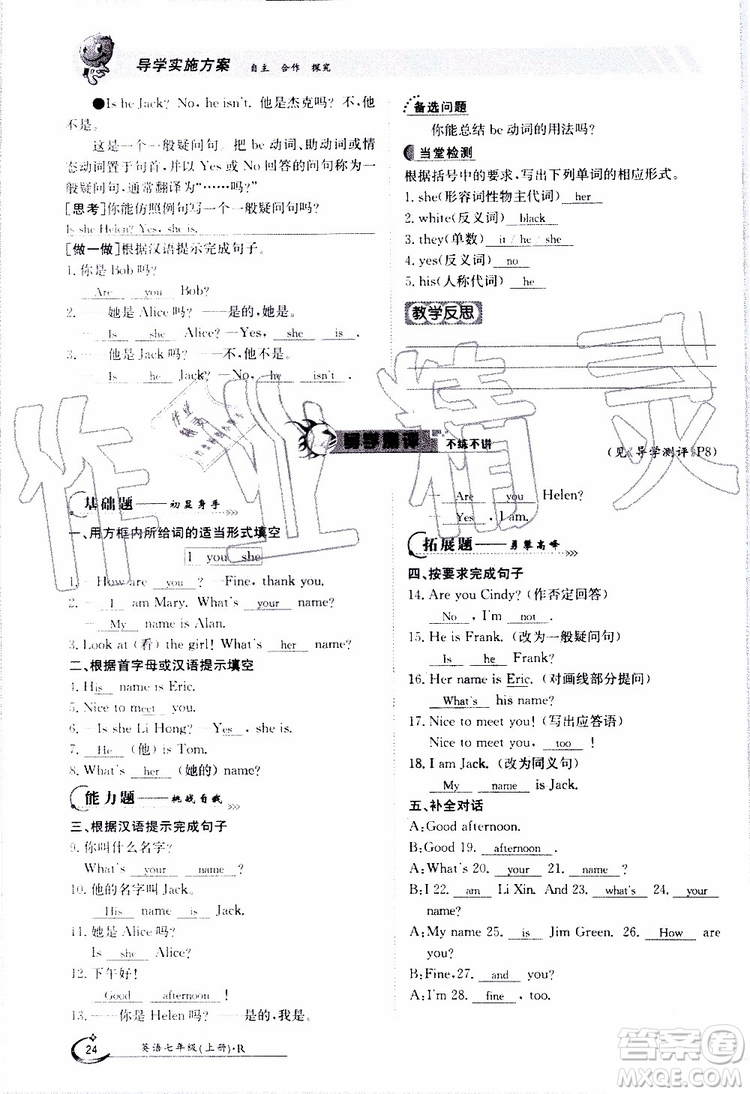 导学实施方案 自主 合作 探究
●Is he Jack? No, he isn't. 他是杰克吗? 不,他
不是。
这是一个一般疑问句。把 be 动词、助动词或情
态动词置于句首,并以 Yes 或 No 回答的问句称为一
般疑问句,通常翻译为“……吗?”
[思考]你能仿照例句写一个一般疑问句吗?
Is she Helen? Yes, she is.
[做一做]根据汉语提示完成句子。
1. 你是 Bob 吗?
Are you Bob?
2. —她是 Alice 吗? —是的,她是。
—Is she Alice? —Yes, she is.
3. —他是 Jack 吗? —不,他不是。
—Is he Jack? —No, he isn't.
备选问题
你能总结 be 动词的用法吗?
当堂检测
根据括号中的要求,写出下列单词的相应形式。
1. she(形容词性物主代词) her
2. white(反义词) black
3. they(单数) it / he / she
4. yes(反义词) no
5. his(人称代词) he
教学反思
导学测评 不练不讲 (见《导学测评》P8)
基础题——初显身手
一、用方框内所给词的适当形式填空
I you she
1. —How are you? —Fine, thank you.
2. —I am Mary. What's your name?
—My name is Alan.
3. Look at (看) the girl! What's her name?
二、根据首字母或汉语提示填空
4. His name is Eric.
5. Nice to meet you.
6. —Is she Li Hong? —Yes, she is.
7. He (他) is Tom.
8. What's her (她的) name?
能力题——挑战自我
三、根据汉语提示完成句子
9. 你叫什么名字?
What's your name?
10. 他的名字叫 Jack。
His name is Jack.
11. 她是 Alice 吗?
Is she Alice?
12. 下午好!
Good afternoon!
13. —你是 Helen 吗? —是的,我是。
—Are you Helen?
—Yes, I am.
拓展题——勇攀高峰
四、按要求完成句子
14. Are you Cindy? (作否定回答)
No, I'm not.
15. He is Frank. (改为一般疑问句)
Is he Frank?
16. Her name is Eric. (对画线部分提问)
What's his name?
17. Nice to meet you! (写出应答语)
Nice to meet you, too!
18. I am Jack. (改为同义句)
My name is Jack.
五、补全对话
A: Good afternoon.
B: Good 19. afternoon.
A: What's 20. your 21. name?
B: I 22. am Li Xin. And 23. what's 24. your
name?
A: My name 25. is Jim Green. 26. How are
you?
B: Fine, 27. and you?
A: I'm 28. fine, too.
24 英语七年级(上册)·R
作业精灵